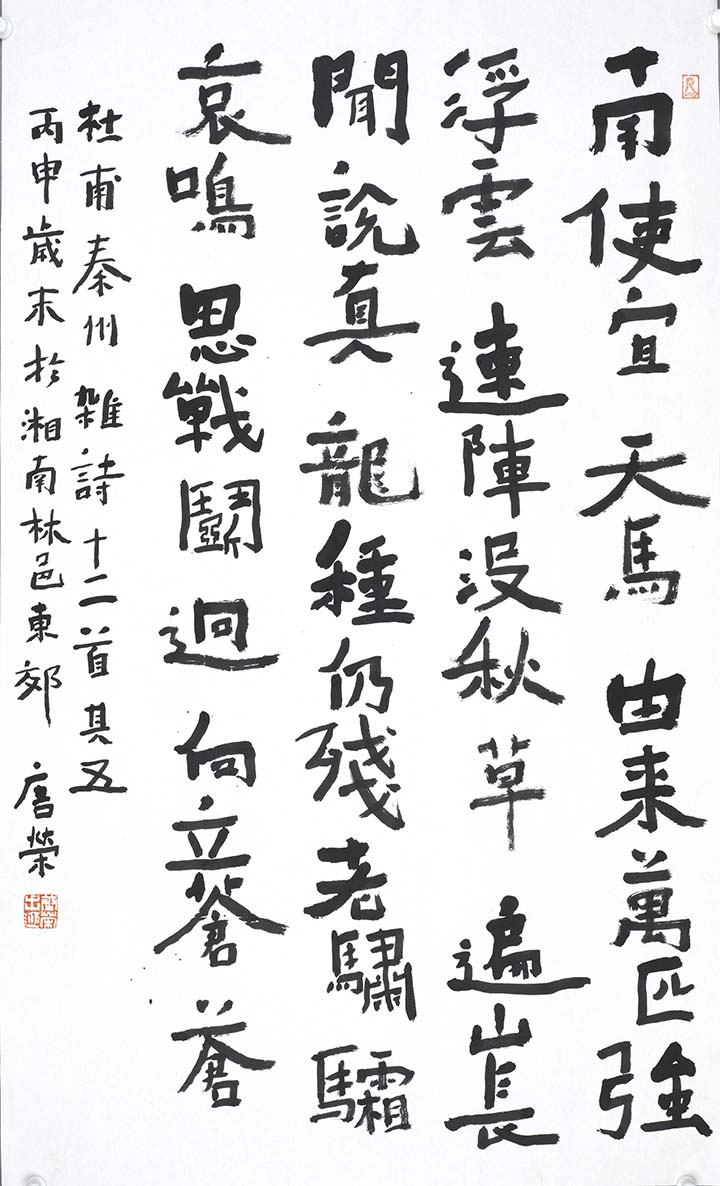 南使宜天馬由来萬匹強
浮雲連陣没秋草遍山長
聞説真龍種仍殘老驌驦
哀鳴思戰鬭逈向立蒼蒼
杜甫秦州雜詩十二首其五
丙申歲末於湘南林邑東郊 唐榮